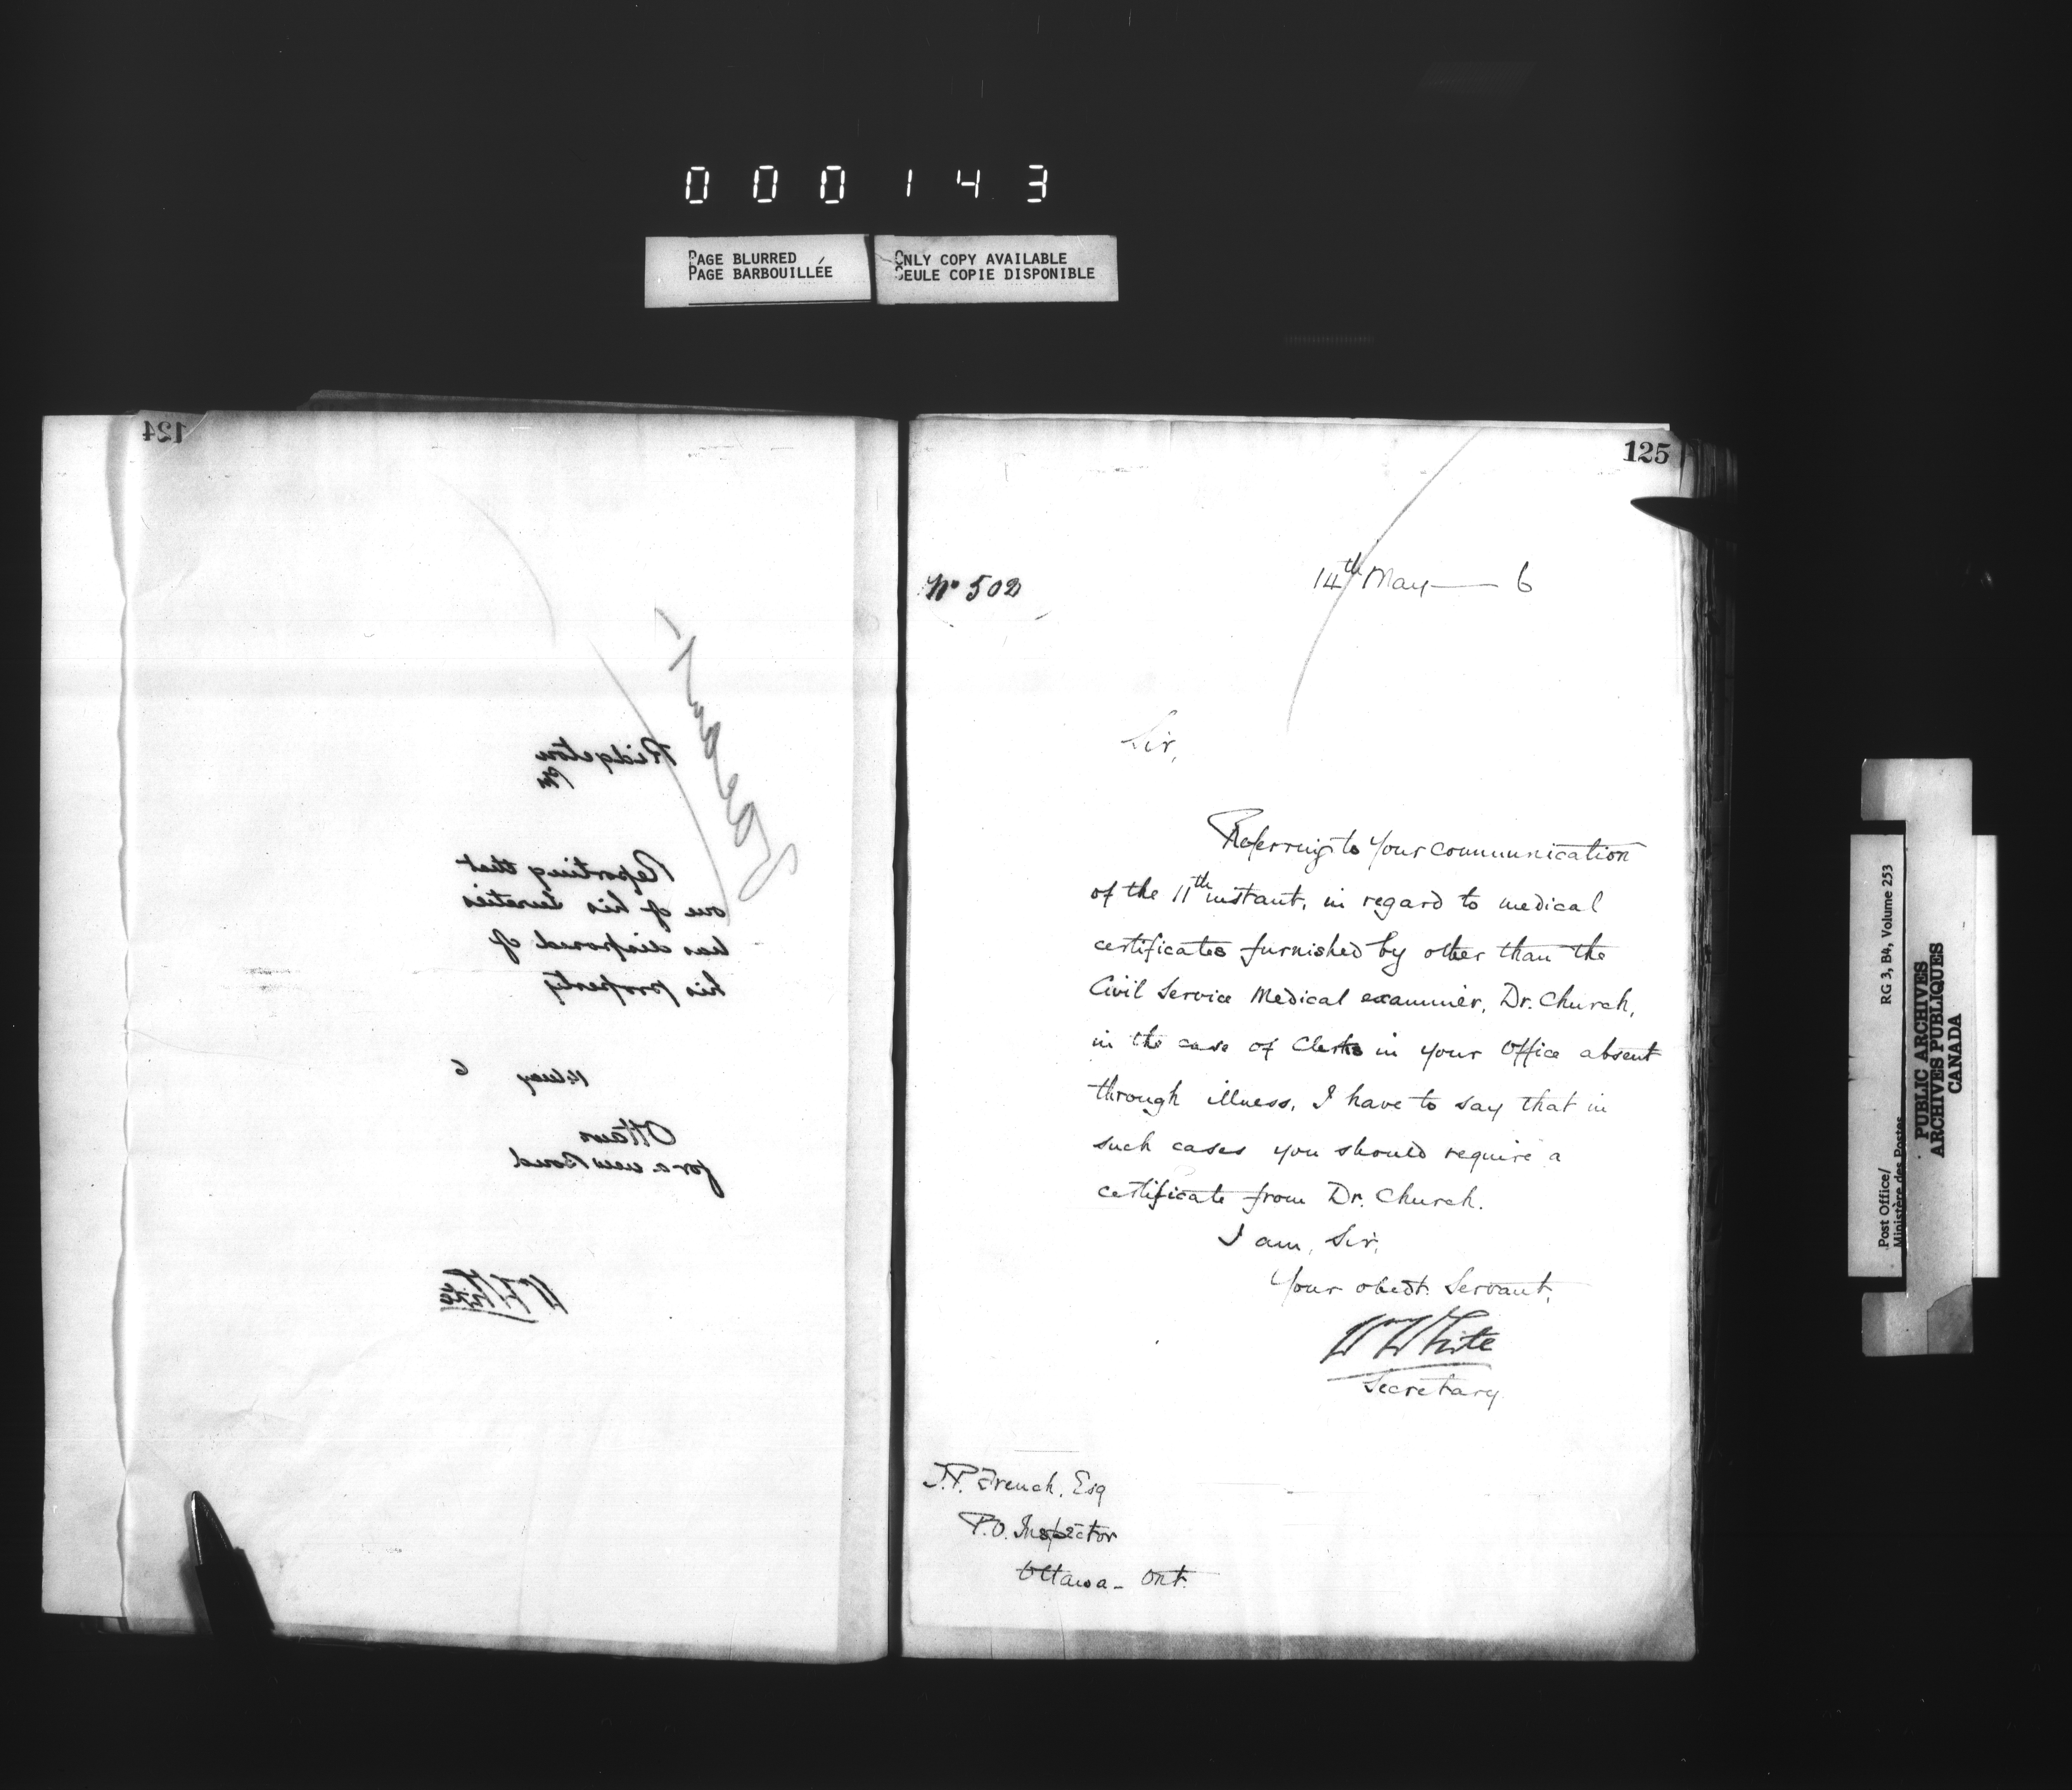 000143
PAGE BLURRED
PAGE BARBOUILLÉE
ONLY COPY AVAILABLE
SEULE COPIE DISPONIBLE
124
Ridgeton
PM
Reporting that
one of his sureties
has disposed of
his property
May 6
Ottawa
for a new Bond
WWhite
125
No 502
14th May — 6
Sir,
Referring to Your communication
of the 11th instant, in regard to medical
certificates furnished by other than the
Civil Service Medical examiner, Dr. Church,
in the case of Clerks in your Office absent
through illness, I have to say that in
such cases you should require a
certificate from Dr. Church.
I am, Sir,
Your obedt. Servant,
WWhite
Secretary
T.P. French, Esq
P.O. Inspector
Ottawa - Ont.
Post Office/
Ministère des Postes
RG 3, B4, Volume 253
PUBLIC ARCHIVES
ARCHIVES PUBLIQUES
CANADA